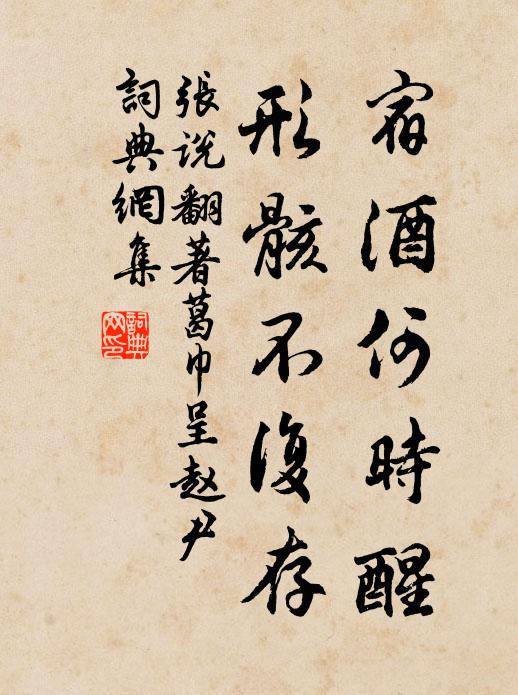 宿酒何時醒
形骸不復存
張說翻著葛巾呈赵尹
詞典網集
詞典網印